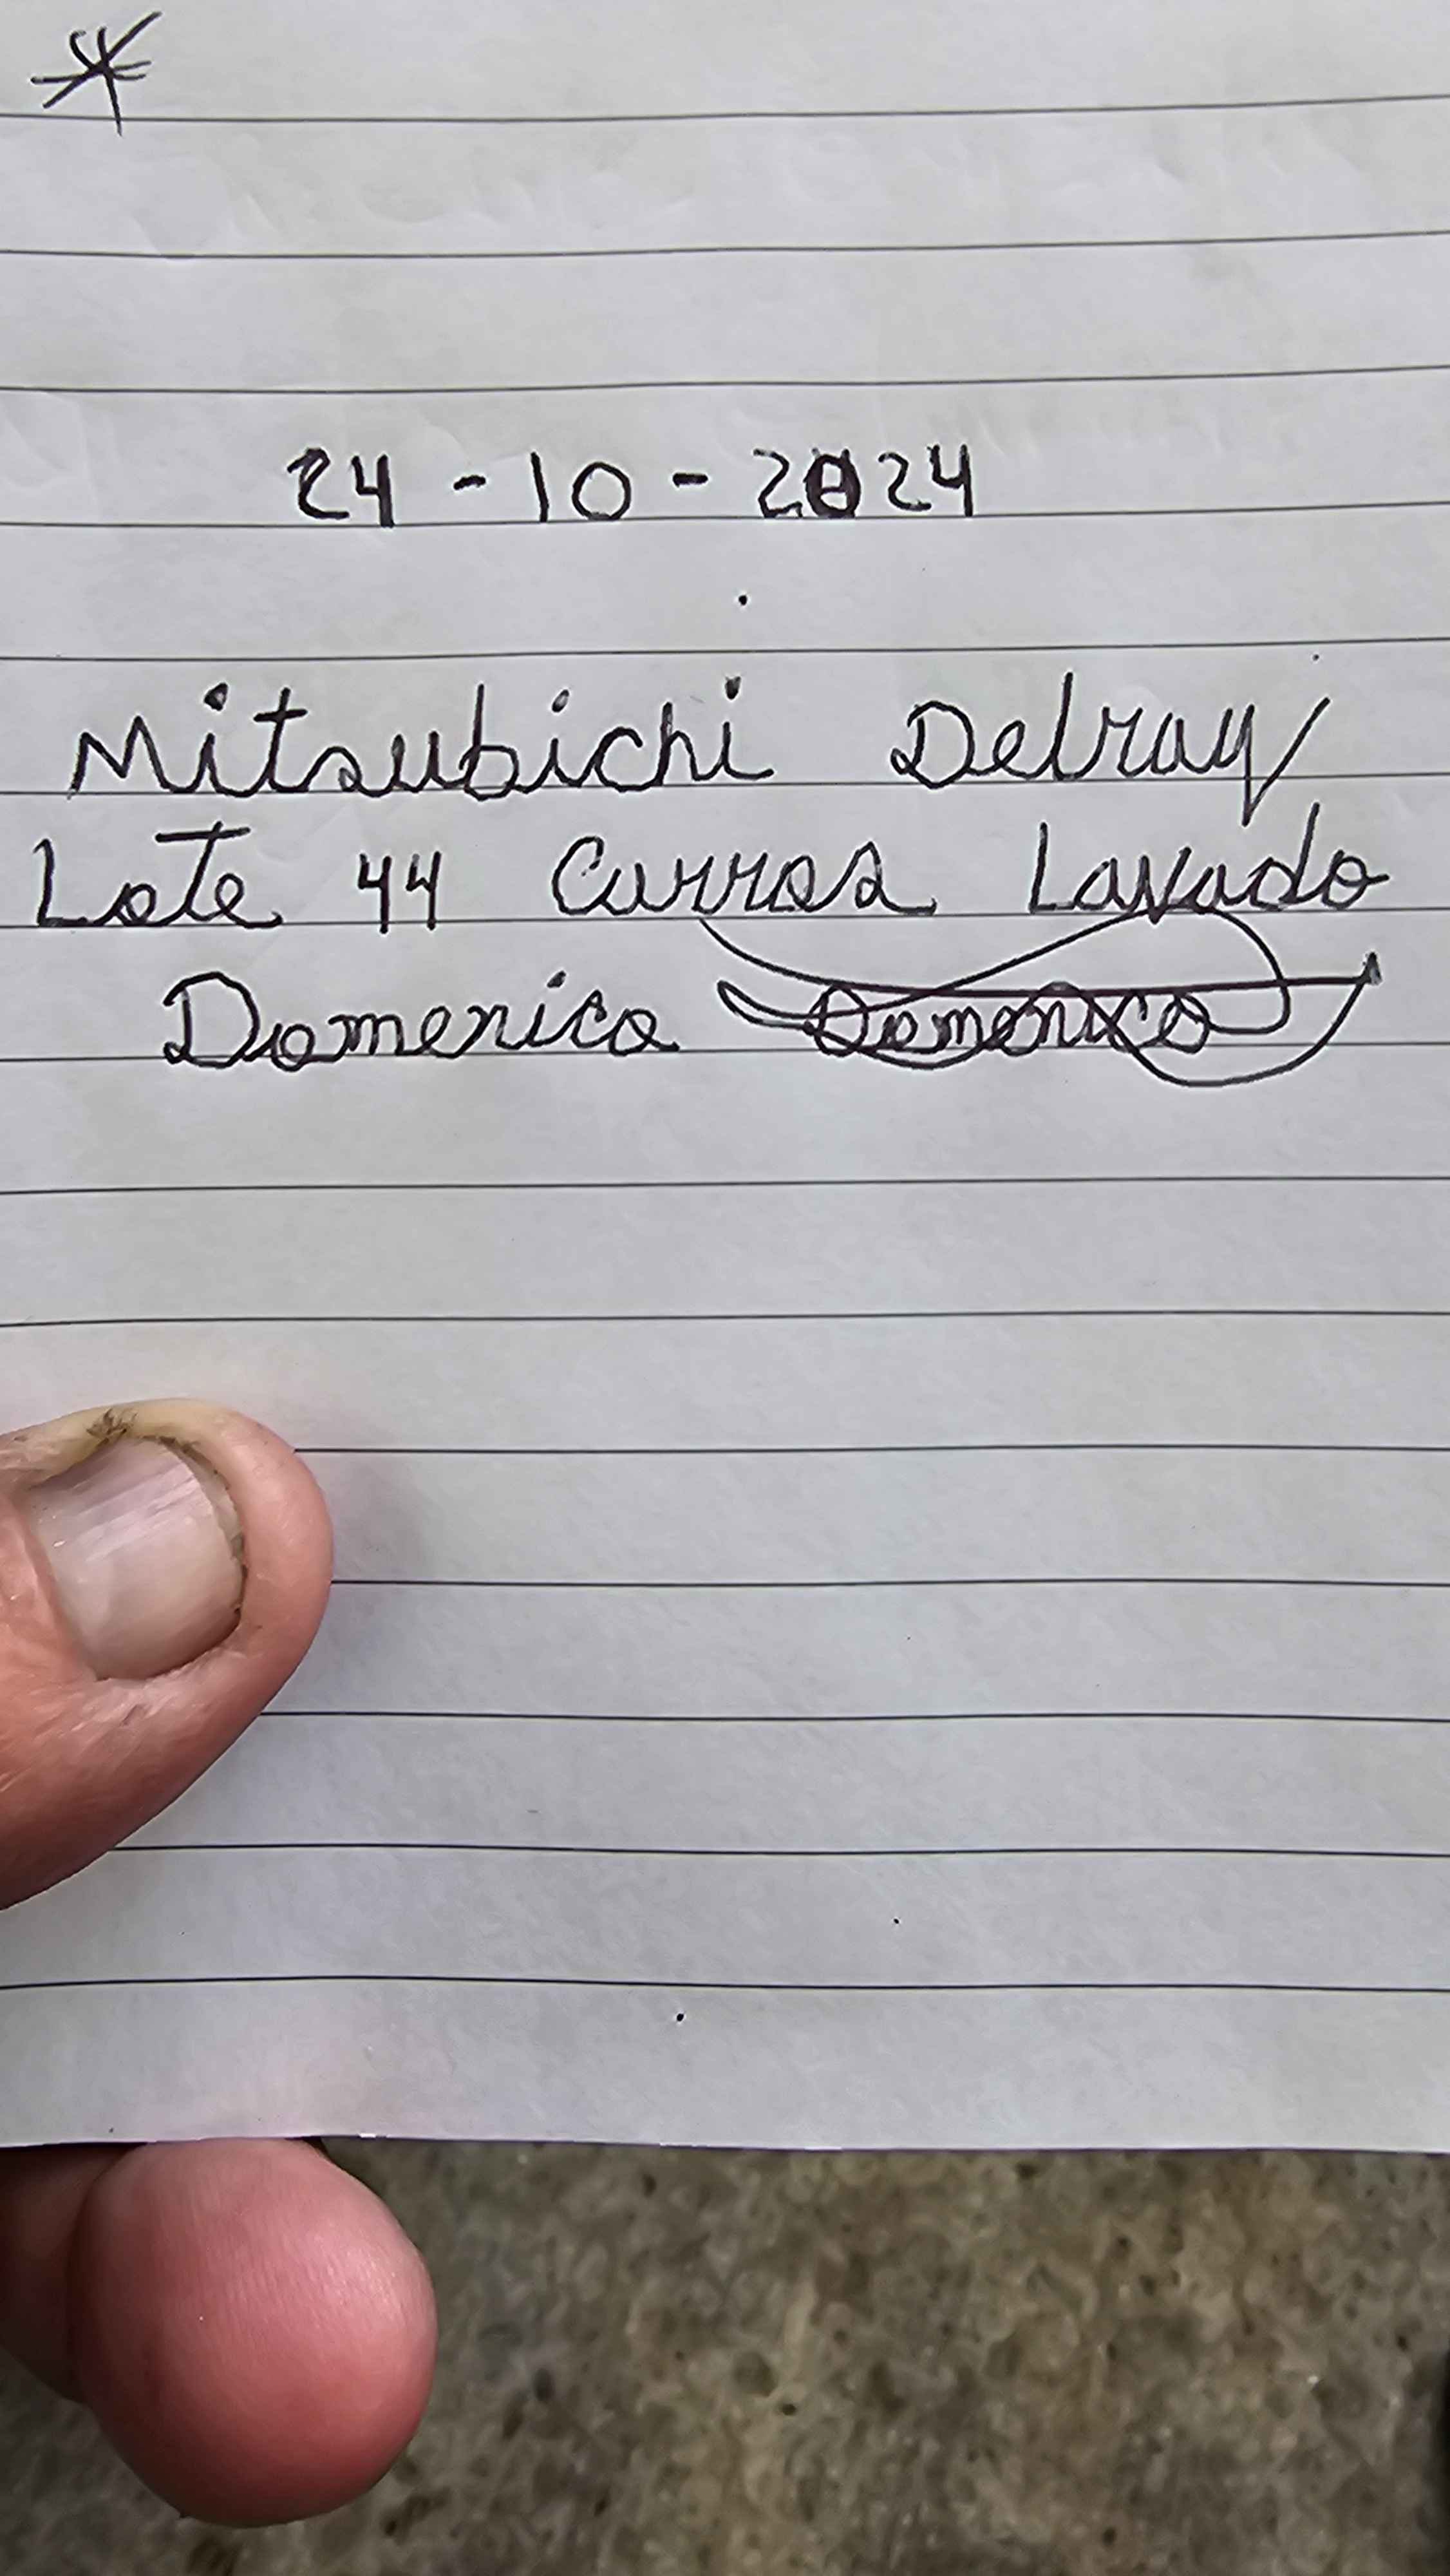 24-10-2024
Mitsubichi Delray
Lote 44 Carros Lavado
Domenico Domenico